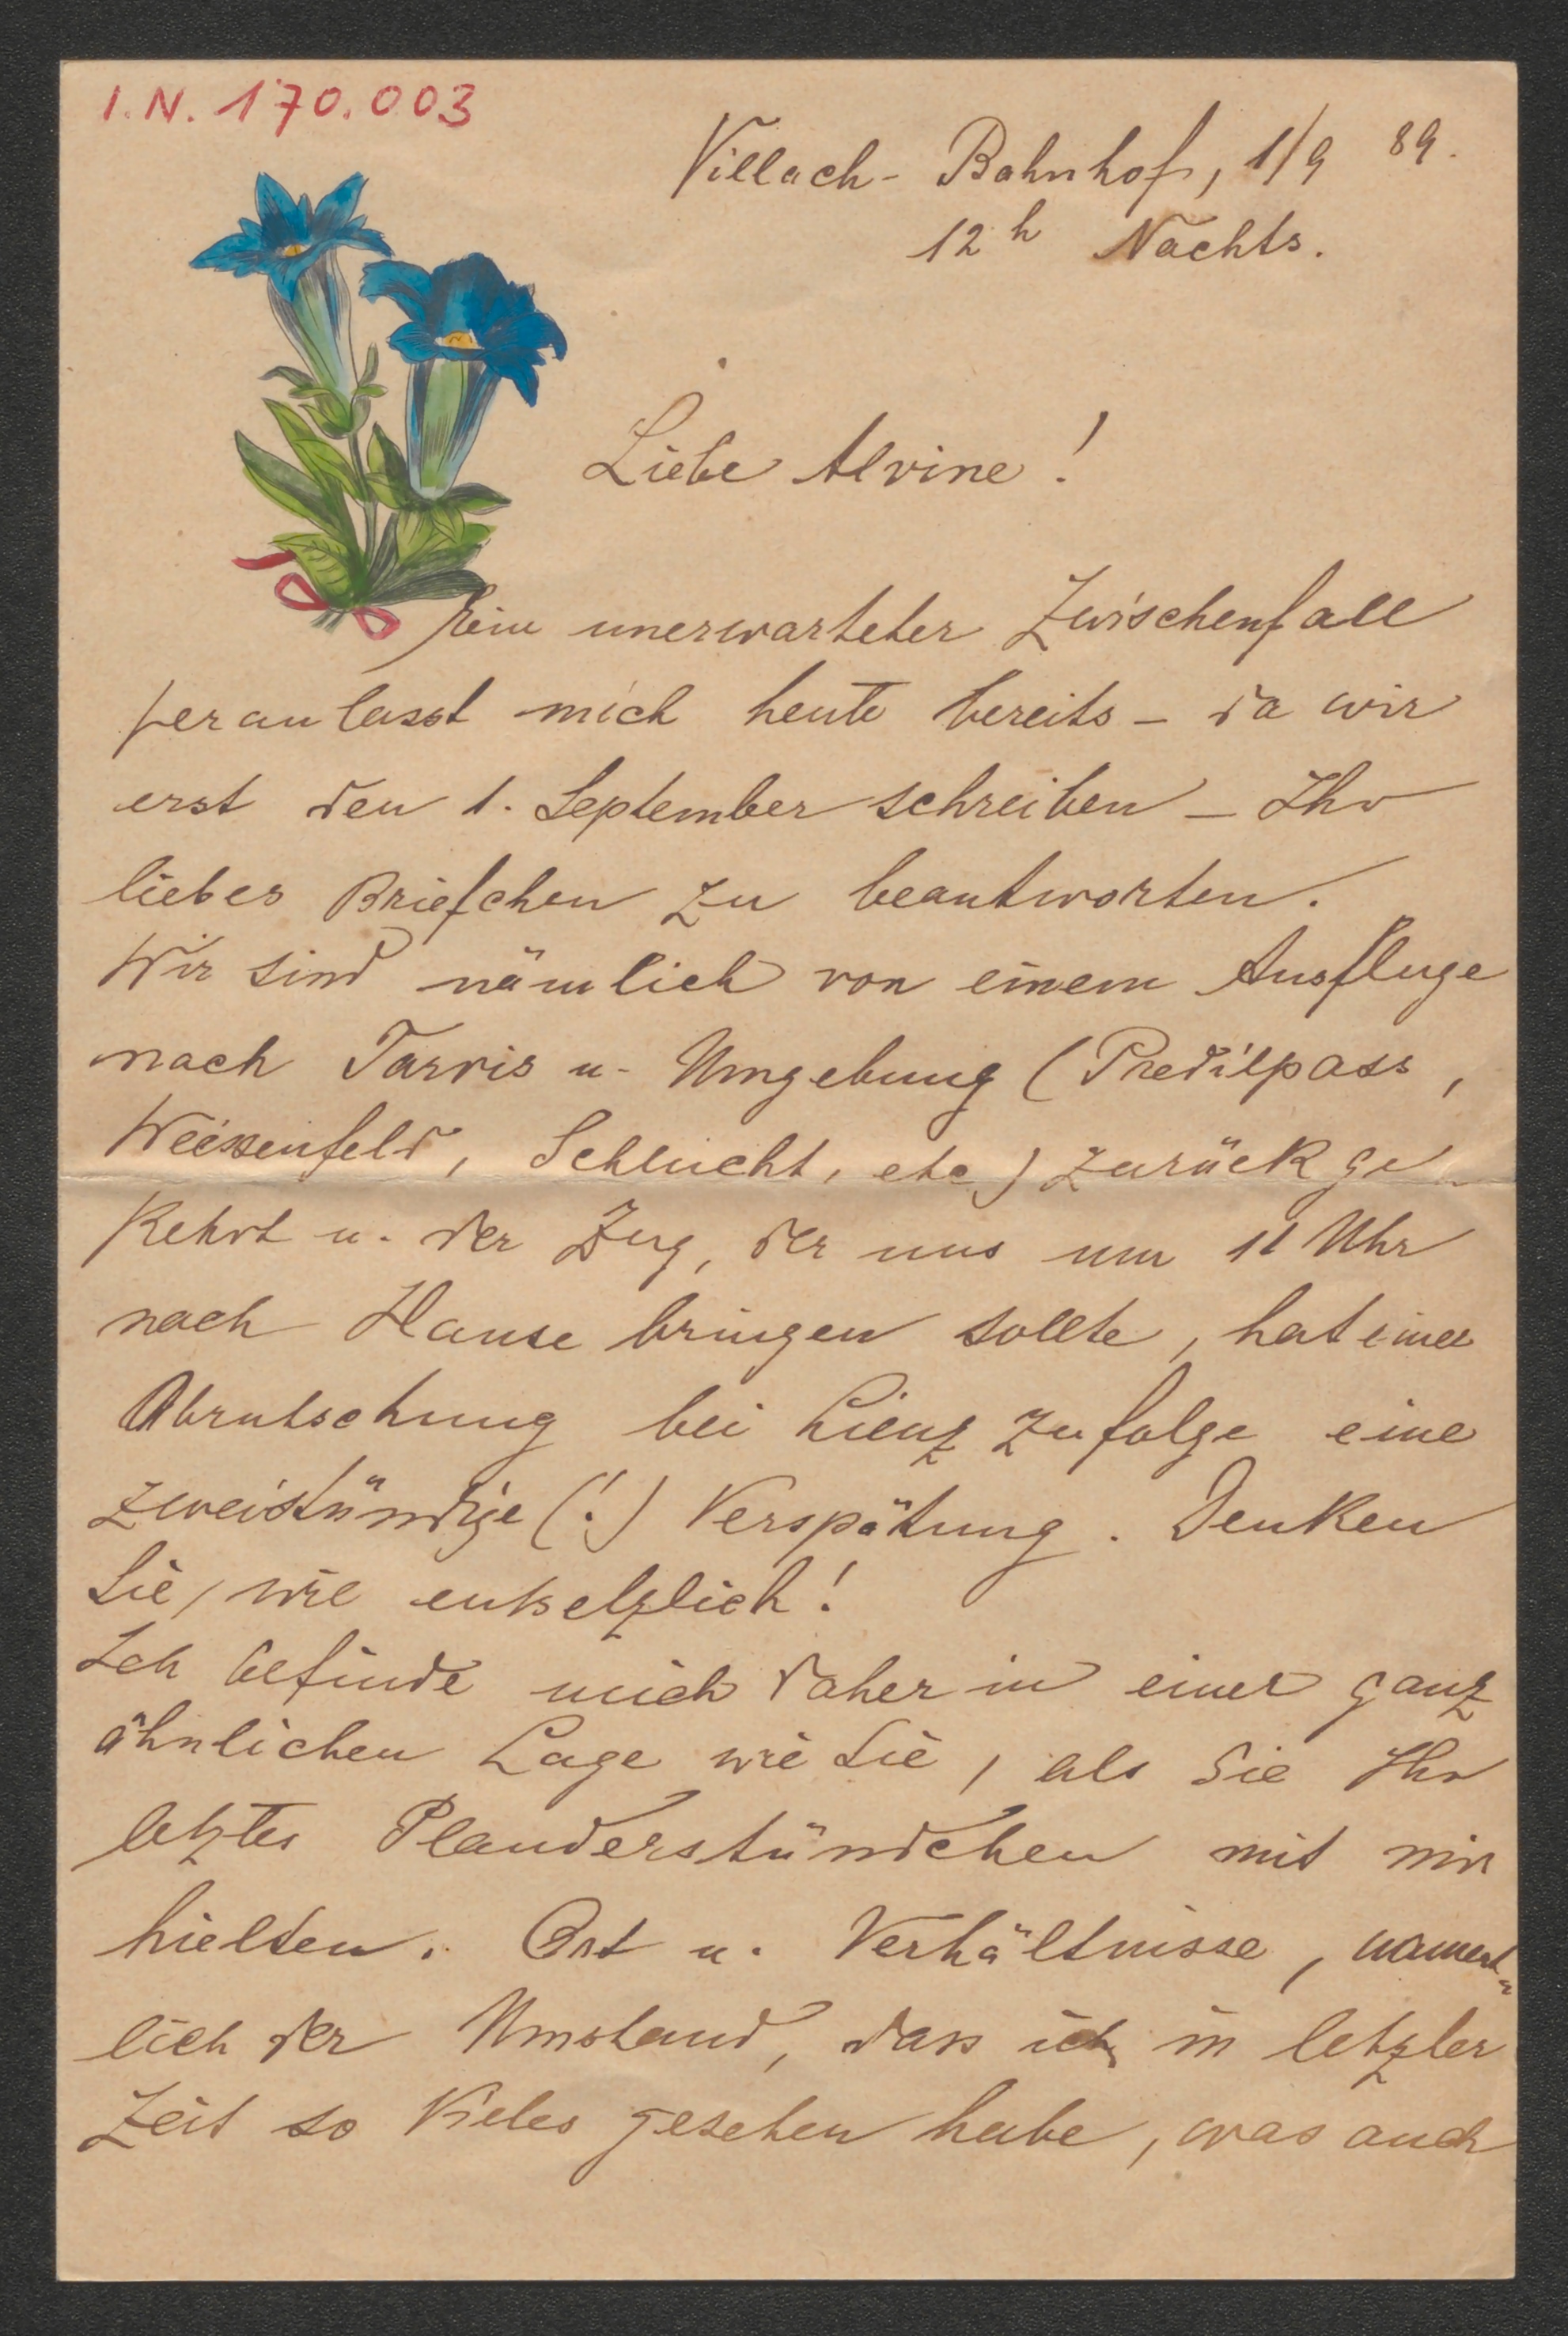 I.N. 170.003
Villach-Bahnhof, 1/9 89.
12 h Nachts.
Liebe Alvine!
Ein unerwarteter Zwischenfall
veranlasst mich heute bereits – da wir
erst den 1. September schreiben – Ihr
liebes Briefchen zu beantworten.
Wir sind nämlich von einem Ausfluge
nach Tarvis u. Umgebung (Predilpass,
Weissenfels, Schlucht, etc) zurückge-
kehrt u. der Zug, der uns um 11 Uhr
nach Hause bringen sollte, hat einer
Abrutschung bei Lienz zufolge eine
zweistündige (!) Verspätung. Denken
Sie, wie entsetzlich!
Ich befinde mich daher in einer ganz
ähnlichen Lage wie Sie, als Sie Ihr
letztes Plauderstündchen mit mir
hielten. Ort u. Verhältnisse, nament-
lich der Umstand, dass ich in letzter
Zeit so Vieles gesehen habe, was auch